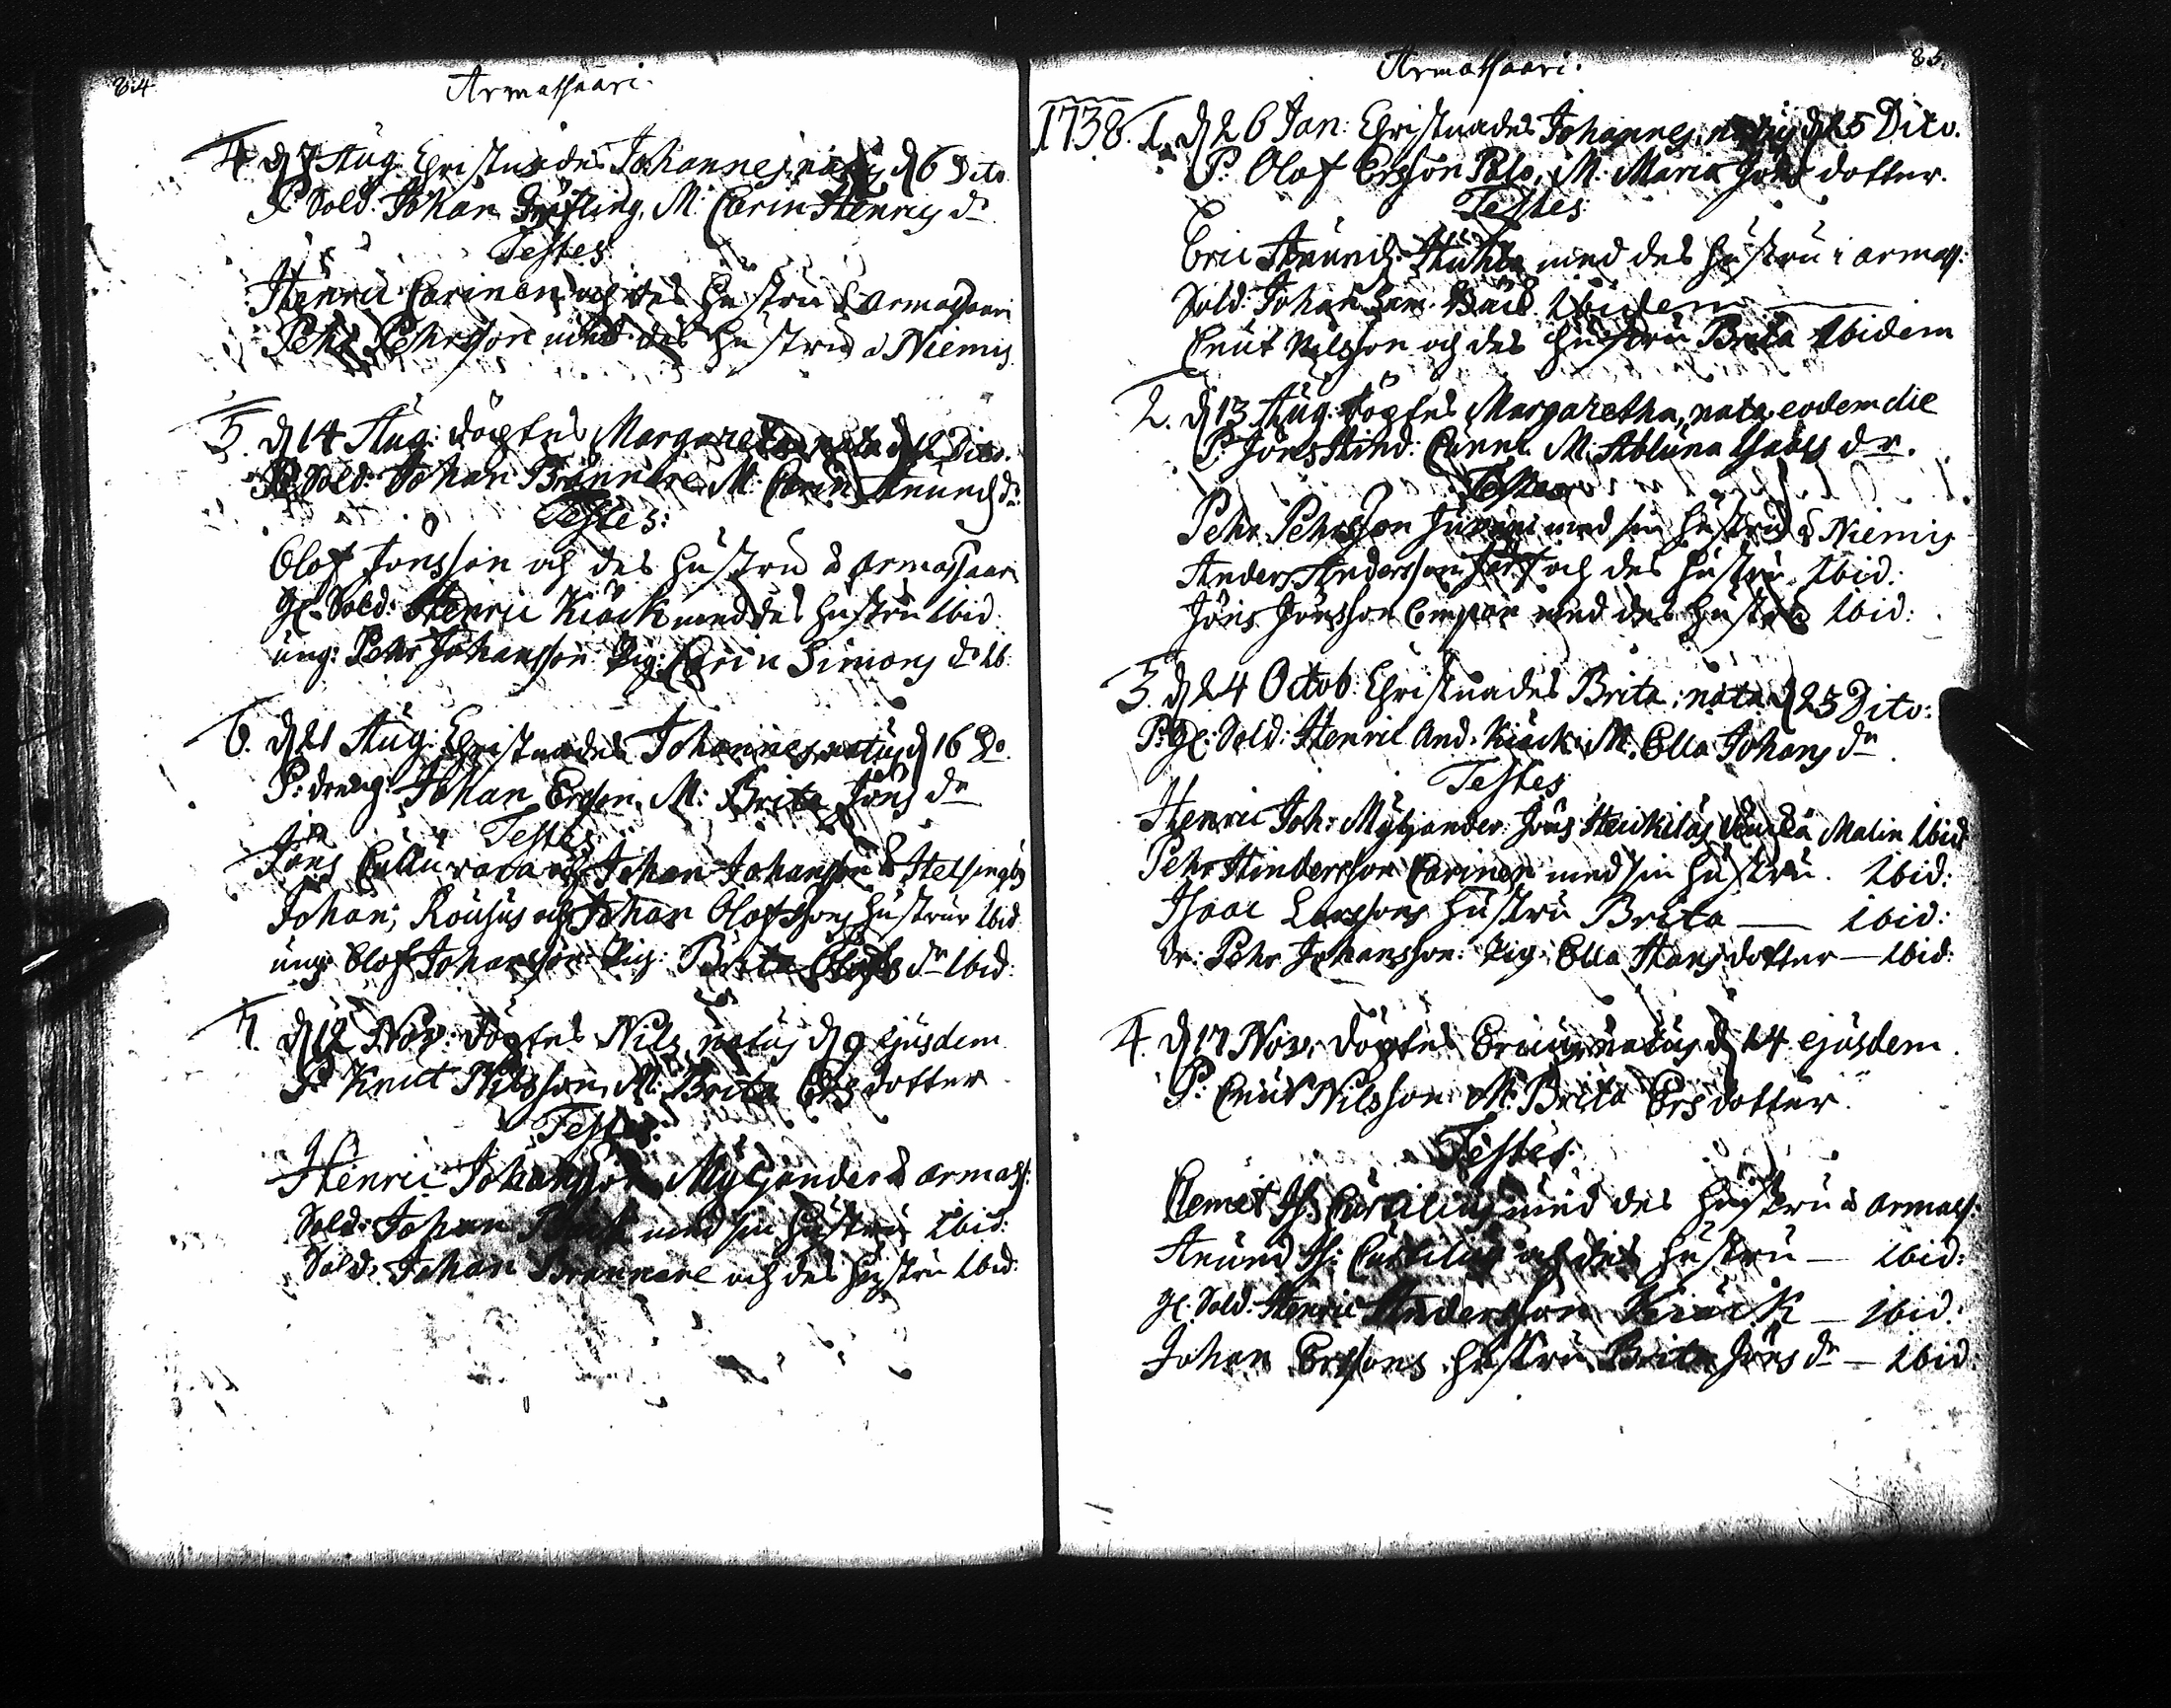 84
Armassaari.
4 d 7 Aug. Christnades Johannes, natus d 6 Dito
P. Sold: Johan M: Carin Henrics dr
Testes
Henric Carinen och des hustru à Armassaari
Pehr Pehrsson med des hustru à Niemis
5. d 14 Aug: döptes Margareta nata d 12 Dito.
P. Sold: Johan Brännare M: Carin Anunds dr
Testes:
Olof Jönsson och des hustru à Armassaari
Gl. Sold: Henric Kiäck med des hustru Ibid.
ung: Pehr Johansson Pig: Carin Simons dr Ib.
6. d 21 Aug: Christnades Johannes natus d 16 Do
P: dreng: Johan Ersson, M: Brita Jöns dr
Testes
Jöns och Johan Johansson à Helsingby
Johan och Johan Olofssons hustrur Ibid
ung: Olof Johansson: Pig: Brita Olofs dr Ibid:
7. d 12 Nov: döptes Nils natus d 9 ejusdem
P: Knut Nilsson, M: Brita Ers dotter
Testes:
Henric Johansson Myljander à Armass:
Sold: Johan Bäck med sin hustru Ibid:
Sold: Johan Brännare och des hustru Ibid:
85.
Armassaari.
1738. 1. d 26 Jan: Christnades Johannes, natus d 25 Dito.
P: Olof Ersson Palo, M: Maria Jöns dotter.
Testes
Eric Anunds: med des hustru i Armass:
Sold: Johan Bäck Ibidem
Cnut Nilsson och des hustru Brita Ibidem
2. d 13 Aug. döptes Margaretha, nata eodem die
P: Jöns M: dr.
Testes
Pehr Pehrsson med sin hustru à Niemis
Anders Andersson och des hustru Ibid:
Jöns Jönsson med des hustru Ibid:
3. d 24 Octob: Christnades Brita, nata d 23 Dito:
P: Gl: Sold: Henric And. Kiäck M: Ella Johans dr
Testes
Henric Joh: Myljander Jöns Heikilas Malin Ibid
Pehr Hindersson Carinen med sin hustru. Ibid:
Isaac Larssons hustru Brita — Ibid:
Dr: Pehr Johansson: Pig: Ella Hans dotter — Ibid:
4. d 17 Nov. döptes Ericus, natus d 14 ejusdem.
P: Cnut Nilsson M: Brita Ers dotter.
Testes:
Clemet med des hustru à Armass:
Anund och des hustru — Ibid:
Gl: Sold: Henric Andersson Kiäck — Ibid:
Johan Erssons hustru Brita Jöns dr — Ibid: